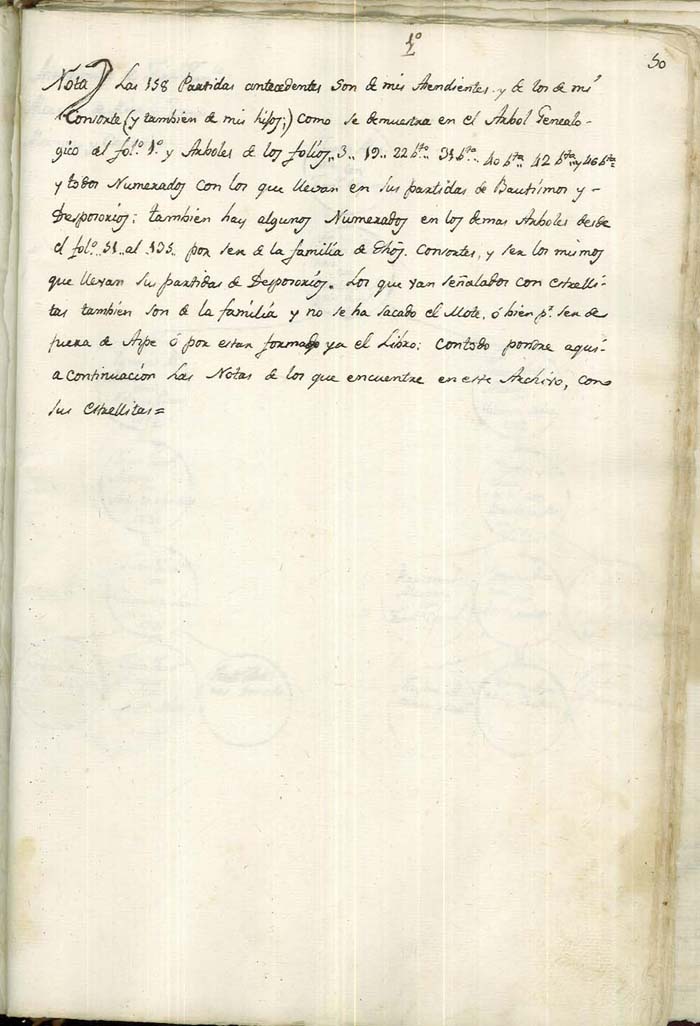 1º
50
Nota) Las 158 Partidas antecedentes son de mis Asendientes y de los de mi
Consorte (y tambien de mis hijos;) como se demuestra en el Arbol Genealo-
gico al fol.º 1.º y Arboles de los folios,, 3,, 19,, 22 b.to 31 b.to 40 b.ta 42 b.ta y 46 b.ta
y todos Numerados con los que llevan en sus partidas de Bautismos y-
Desposorios; tambien hay algunos Numerados en los demas Arboles desde
el fol.º 51,, al 135,, por ser de la familia de dhos. Consortes, y ser los mismos
que llevan sus partidas de Desposorios. Los que van señalados con estrelli-
tas tambien son de la familia y no se ha sacado el Mote, ó bien p.r ser de
fuera de Aspe ó por estar formado ya el Libro: con todo pondre aqui-
a continuación las Notas de los que encuentre en este Archivo, con
sus estrellitas=